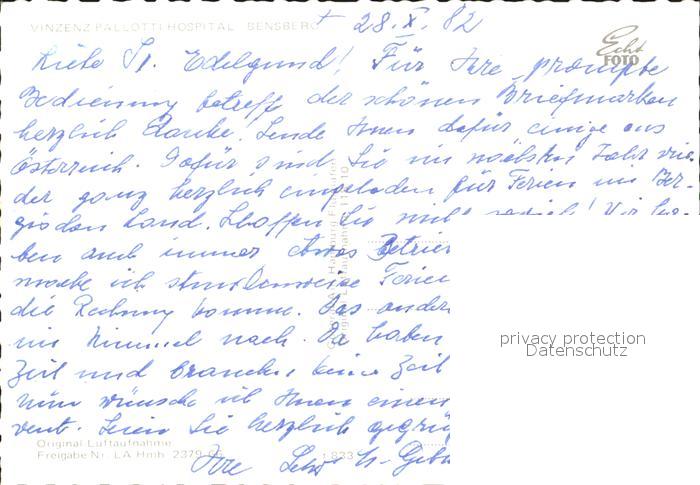 VINZENZ PALLOTTI HOSPITAL BENSBERG
+ 28.X.82
Echt
FOTO
Liebe Sr. Edelgund! Für Ihre prompte
Bedienung betreff der schönen Briefmarken
herzlich danke. Sende Ihnen dafür einige aus
Österreich. Dafür sind Sie im nächsten Jahr wie-
der ganz herzlich eingeladen für Ferien im Ber-
gischen Land. Sie
ben auch immer etwas Betrie
mache ich stundenweise Ferien
die Rechnung komme. Das andere
im Himmel nach. Da haben
Zeit und brauchen keine Zeit
Nun wünsche ich Ihnen einen
vent. Seien Sie herzlich gegrü
Ihre Schw.
privacy protection
Datenschutz
Original Luftaufnahme
Freigabe Nr. LA Hmb. 2379